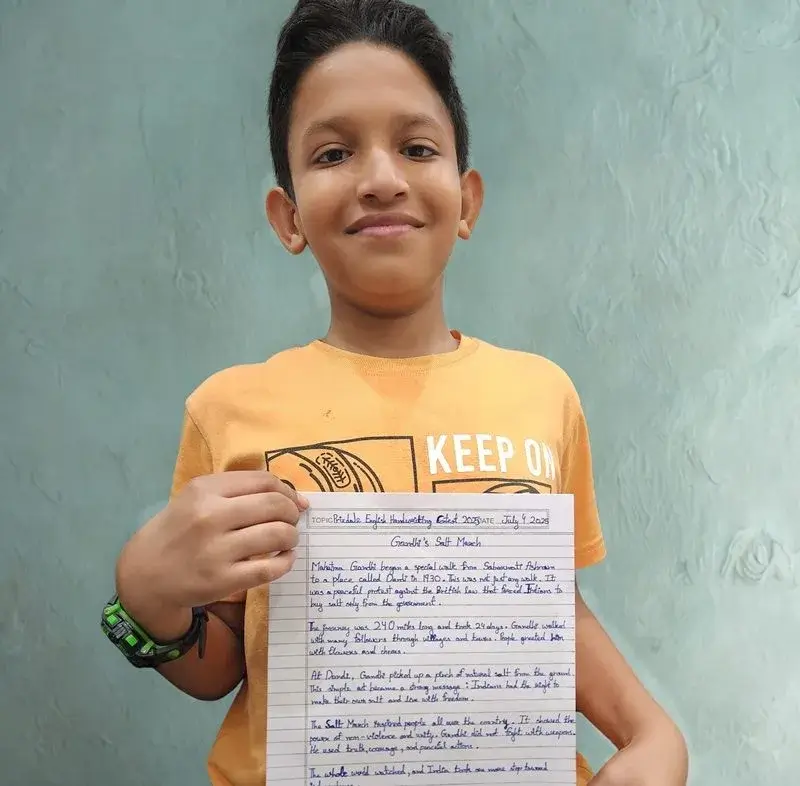 KEEP ON
TOPIC Priedale English Handwriting Contest 2025 DATE July 9 2025
Gandhi's Salt March
Mahatma Gandhi began a special walk from Sabarmati Ashram
to a place called Dandi in 1930. This was not just any walk. It
was a peaceful protest against the British law that forced Indians to
buy salt only from the government.
The journey was 240 miles long and took 24 days. Gandhi walked
with many followers through villages and towns. People greeted him
with flowers and cheers.
At Dandi, Gandhi picked up a pinch of natural salt from the ground.
This simple act became a strong message: Indians had the right to
make their own salt and live with freedom.
The Salt March inspired people all over the country. It showed the
power of non-violence and unity. Gandhi did not fight with weapons.
He used truth, courage, and peaceful actions.
The whole world watched, and India took one more step toward